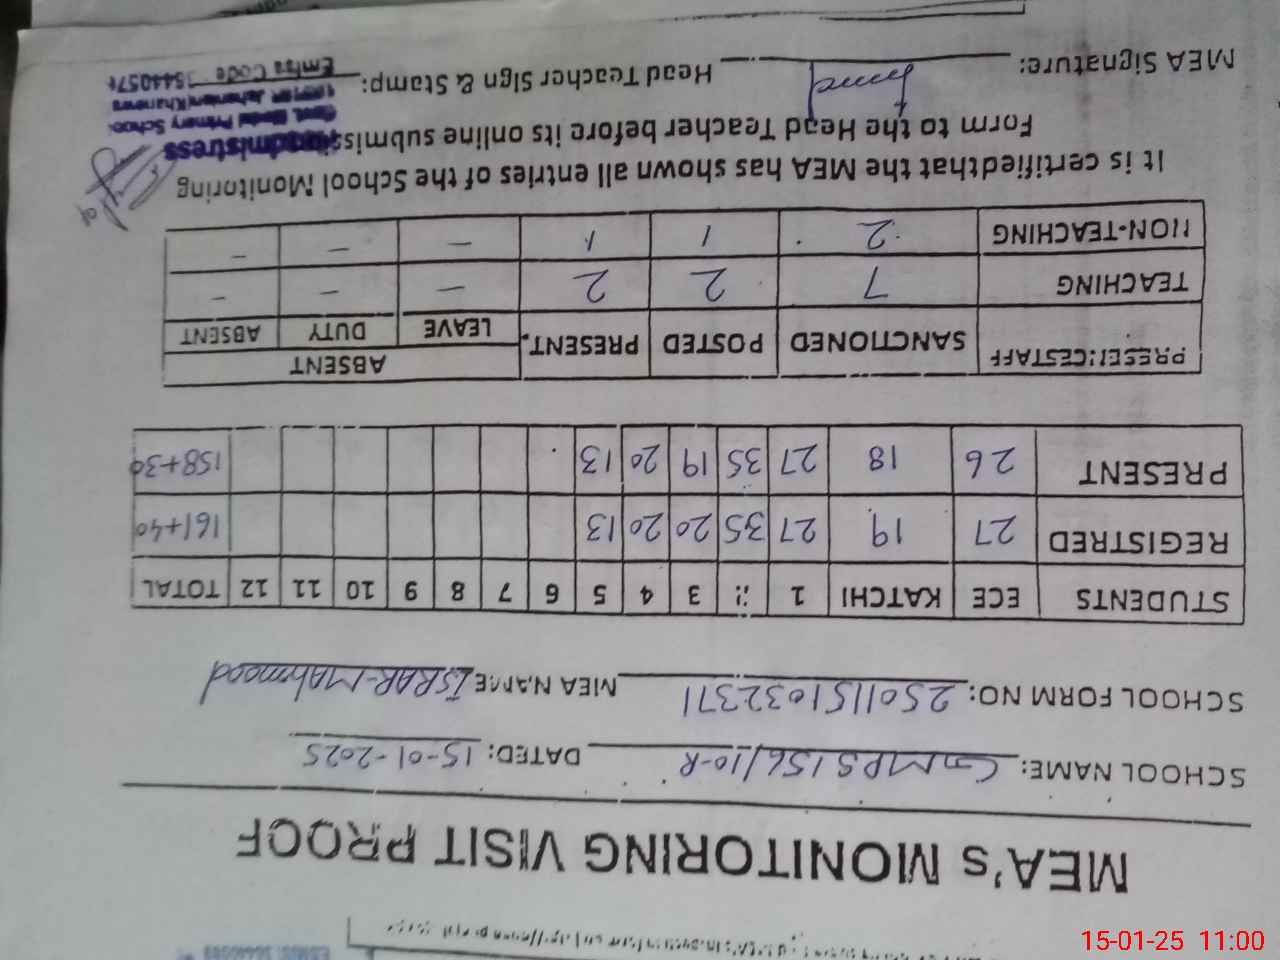 MEA's MONITORING VISIT PROOF
SCHOOL NAME: GMPS 156/10-R DATED: 15-01-2025
SCHOOL FORM NO: 2501151032371 MEA NAME ISRAR-Mahmood
STUDENTS ECE KATCHI 1 3 4 5 6 7 8 9 10 11 12 TOTAL
REGISTRED 27 19 27 35 20 20 13 161+40
PRESENT 26 18 27 35 19 20 13 158+30
PRESENCESTAFF SANCTIONED POSTED PRESENT. ABSENT
LEAVE DUTY ABSENT
TEACHING 7 2 2 - - -
NON-TEACHING 2 1 1 - - -
It is certifiedthat the MEA has shown all entries of the School Monitoring
Form to the Head Teacher before its online submis
MEA Signature: Head Teacher Sign & Stamp:
Primary School
Emis Code
15-01-25 11:00